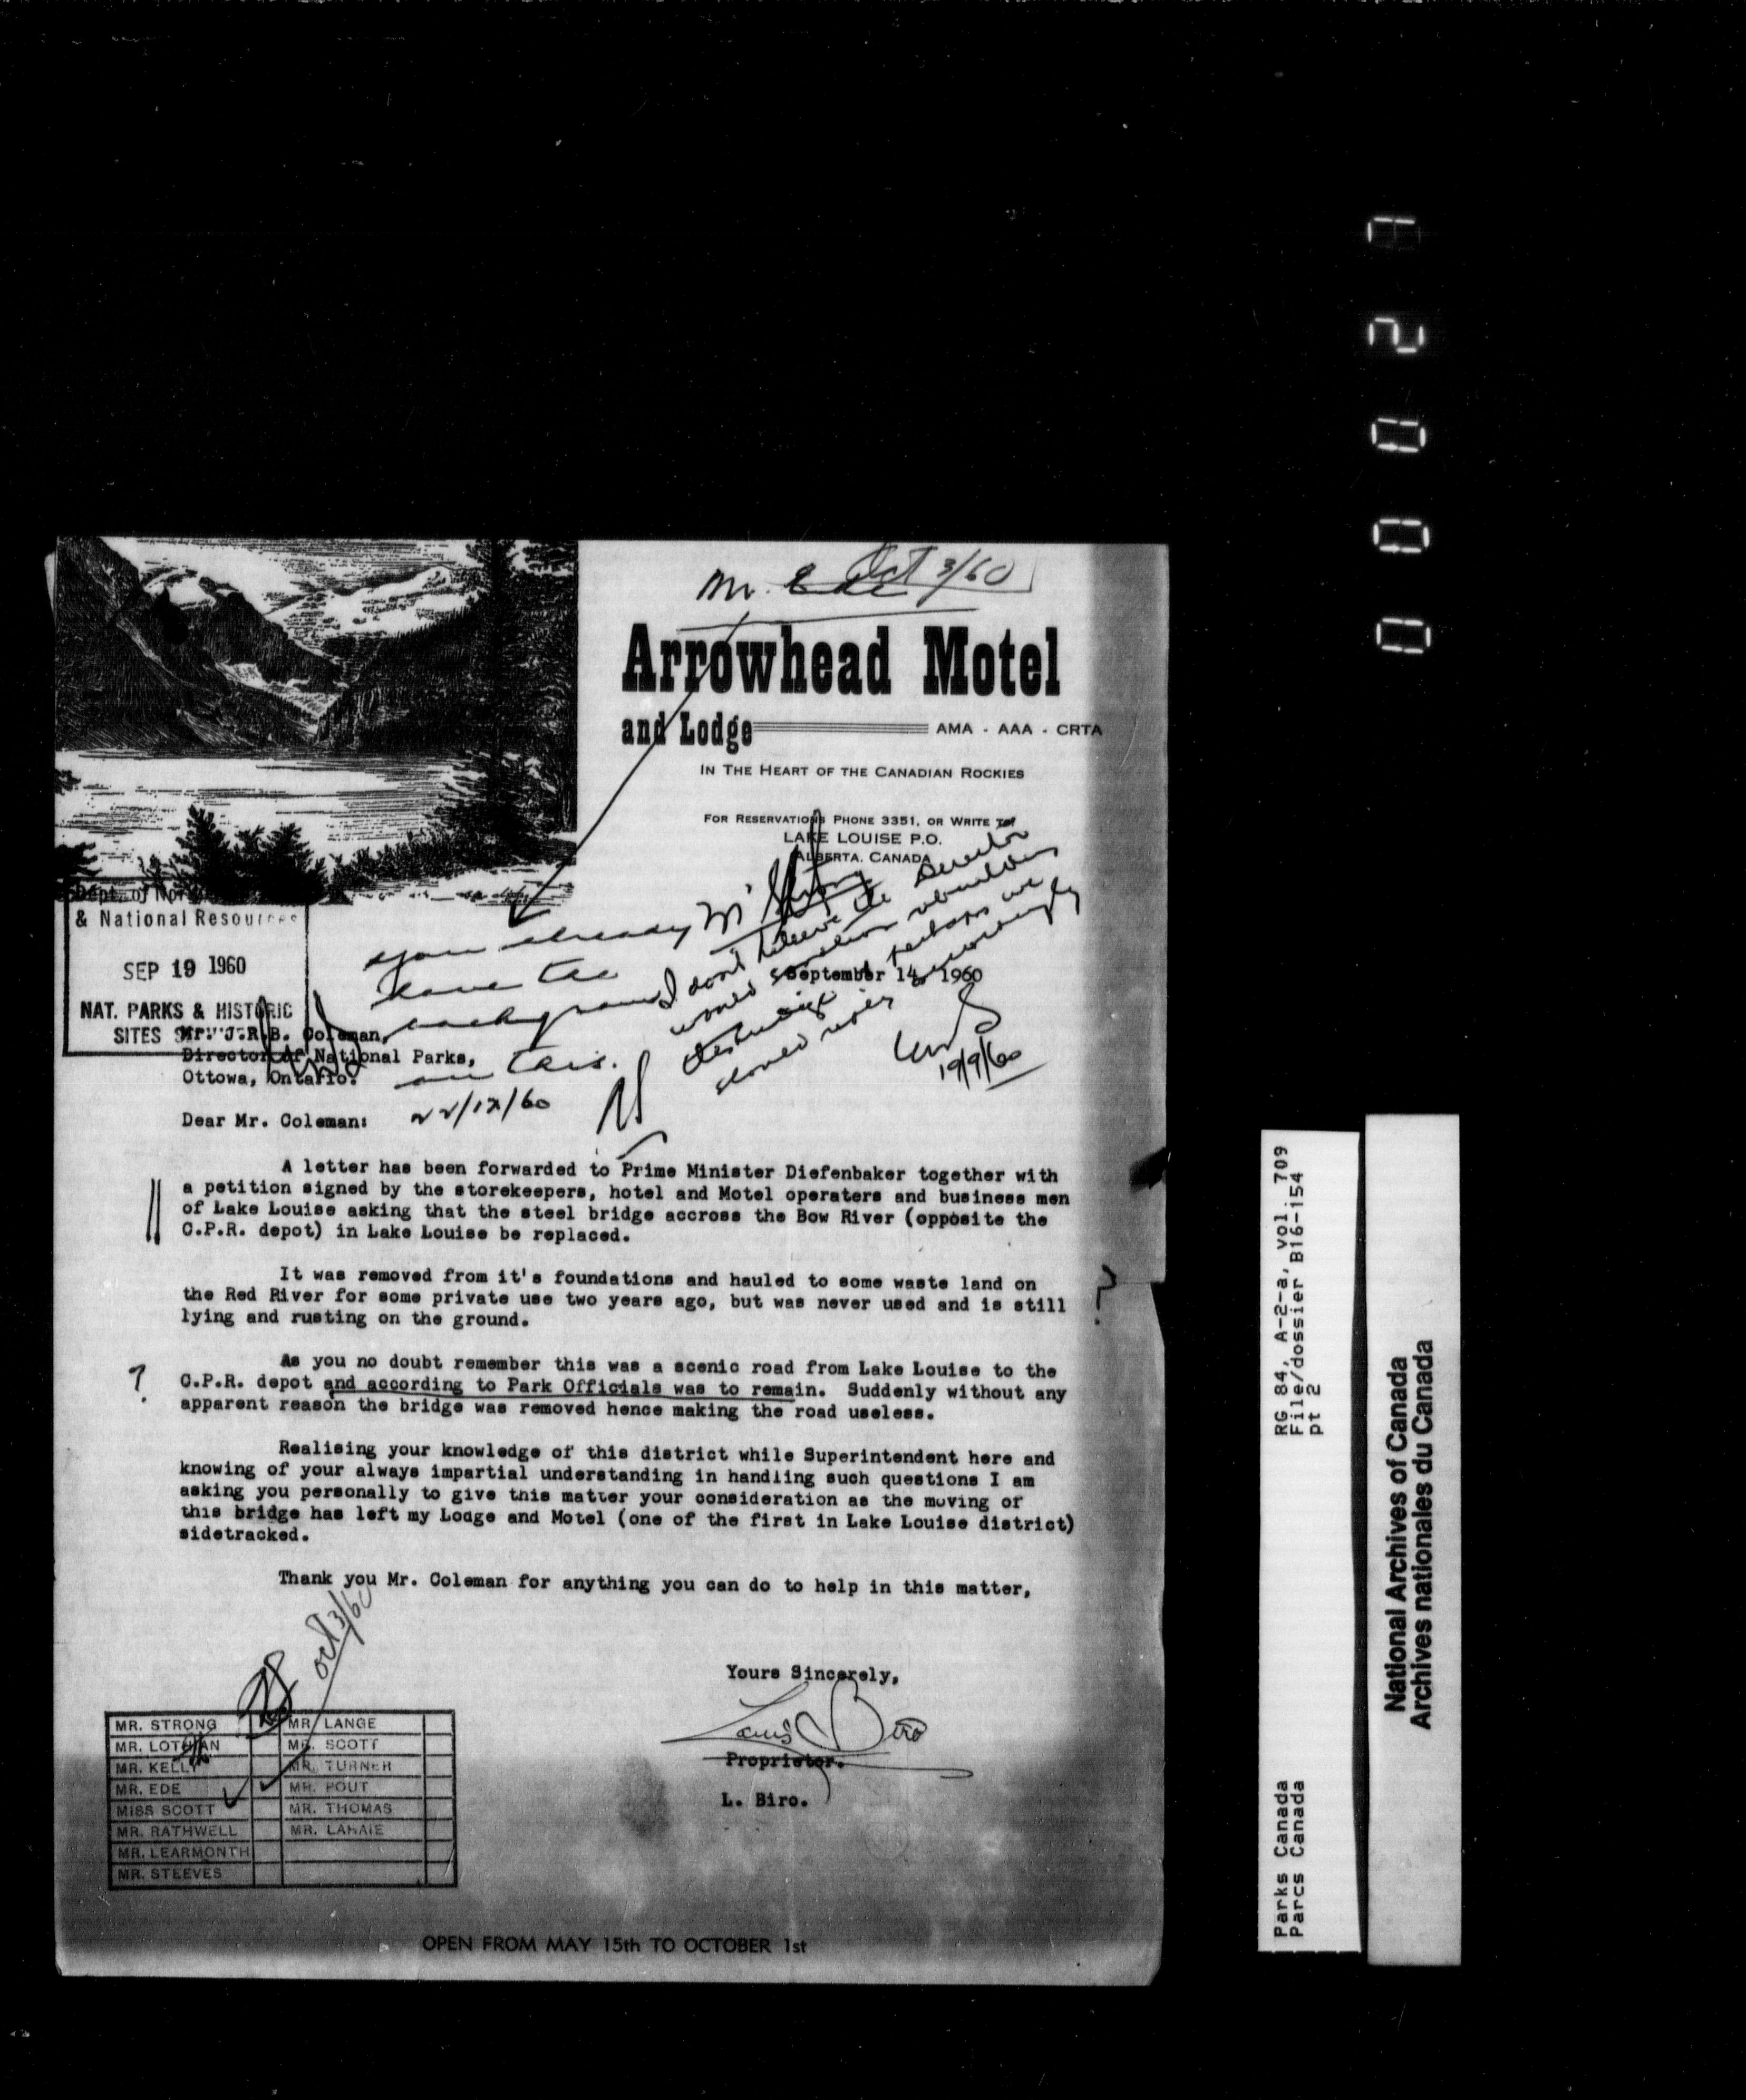 Mr. Ede Oct 3/60
Arrowhead Motel
and Lodge AMA - AAA - CRTA
IN THE HEART OF THE CANADIAN ROCKIES
FOR RESERVATIONS PHONE 3351, OR WRITE TO:
LAKE LOUISE P.O.
ALBERTA, CANADA
Dept. of
& National Resources
SEP 19 1960
NAT. PARKS & HISTORIC
SITES
you already
have the
background
on this.
22/12/60
Mr Strong
I don't believe the Director
perhaps we
19/9/60
September 14, 1960
Mr. J.R.B. Coleman,
Director of National Parks,
Ottowa, Ontario.
Dear Mr. Coleman:
A letter has been forwarded to Prime Minister Diefenbaker together with
a petition signed by the storekeepers, hotel and Motel operaters and business men
of Lake Louise asking that the steel bridge accross the Bow River (opposite the
C.P.R. depot) in Lake Louise be replaced.
It was removed from it's foundations and hauled to some waste land on
the Red River for some private use two years ago, but was never used and is still ?
lying and rusting on the ground.
As you no doubt remember this was a scenic road from Lake Louise to the
? C.P.R. depot and according to Park Officials was to remain. Suddenly without any
apparent reason the bridge was removed hence making the road useless.
Realising your knowledge of this district while Superintendent here and
knowing of your always impartial understanding in handling such questions I am
asking you personally to give this matter your consideration as the moving of
this bridge has left my Lodge and Motel (one of the first in Lake Louise district)
sidetracked.
Thank you Mr. Coleman for anything you can do to help in this matter,
Oct 3/60
Yours Sincerely,
Louis Biro
Proprietor.
L. Biro.
MR. STRONG MR. LANGE
MR. LOTHIAN MR. SCOTT
MR. KELLY MR. TURNER
MR. EDE MR. POUT
MISS SCOTT MR. THOMAS
MR. RATHWELL MR. LAHAIE
MR. LEARMONTH
MR. STEEVES
OPEN FROM MAY 15th TO OCTOBER 1st
RG 84, A-2-a, vol. 709
File/dossier B16-154
pt 2
Parks Canada
Parcs Canada
National Archives of Canada
Archives nationales du Canada